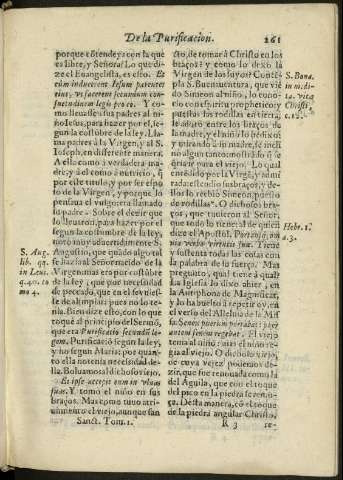 De la Purificacion. 261
porque cõtendeya con la que
es libre, y Señora! Lo que di-
ze el Euangelista, es esto. Et
cùm inducerent Iesum parentes
eius, vt facerent secundùm con-
suetudinem legis pro eo. Y como
lleuasse sus padres al ni-
ño Iesus, para hazer por el, se-
gun la costũbre de la ley. Lla-
ma padres à la Virgen, y al S.
Ioseph, en differente manera.
A ella como à verdadera ma-
dre, y à el como à nutricio, q̃
por este titulo, y por ser espo
so de la Virgen, y porque lo
pensaua el vulgo era llamado
su padre. Sobre el dezir que
lo lleuaron, para hazer por el
segun la costumbre de la ley,
noto muy aduertidamente S.
Augustin, que quãdo algo tal
se haze al Sentencia de la
Virgen, mas era por costũbre
de la ley, que por necessidad
de pecado, que en el se vuiesse
de alimpiar, pues no lo te-
nia. Bien dize esto, con lo que
toquè al principio del Sermõ,
que era Purificatio secundũ le-
gem. Purificò segun la ley,
y no segun Maria; por quanto
ella no tenia necessidad de-
lla. Boluamos al dicho viejo.
Et ipse accepit eum in vlnas
suas. Y tomo el niño en sus
braços. Mas como tuuo atri-
uimiento el viejo, aunque san
Sanct. Tom. 1.
S. Aug.
lib. qq.
in Leui.
q. 40. to
mo 4.
to, de tomar à Christo en los
braços? y como lo dexò la
Virgen de los suyos? Conté-
pla S. Buenauentura, que viẽ
do Simeon al niño, lo cono-
cio con espiritu prophetico; y
puestas las rodillas en tierra,
le adorò entre los braços de
la madre, y el niño lo bẽdixo
y mirando à la madre, se incli
no algun tanto mostrãdo, q̃ se
queria ir para el viejo. Lo qual
entendido por la Virgẽ, y admi
rada, estendio sus braços, y de-
llos lo recibio Simeon, puesto
de rodillas. O dichosos bra-
ços, que tuuieron al Señor,
que todo lo tiene; al de quien
dize el Apostol. Portans, om-
nia verbo virtutis suæ. Tiene
y sustenta todas las cosas con
la palabra de su fuerça. Mas
pregunto, qual tiene à qual?
La Iglesia lo dixo ahier, en
la Antiphona de Magnificat,
y lo ha buelto à repetir oy, en
el verso del Alleluia de la Mis-
sa. Senex puerum portabat: puer
autem senem regebat. El viejo
tenia al niño: mas el niño re-
gia al viejo. O dicho so viejo,
de cuya vejez podemos de-
zir, que fue renouada como la
del Aguila, que con el toque
del pico en la piedra se renue-
ua. Desta manera, cõ el toque
de la piedra angular Christo,
R 3
S. Bona.
in m. di-
ta. vitæ
Christi,
c. 12.
Hebr. 1.
a. 3.